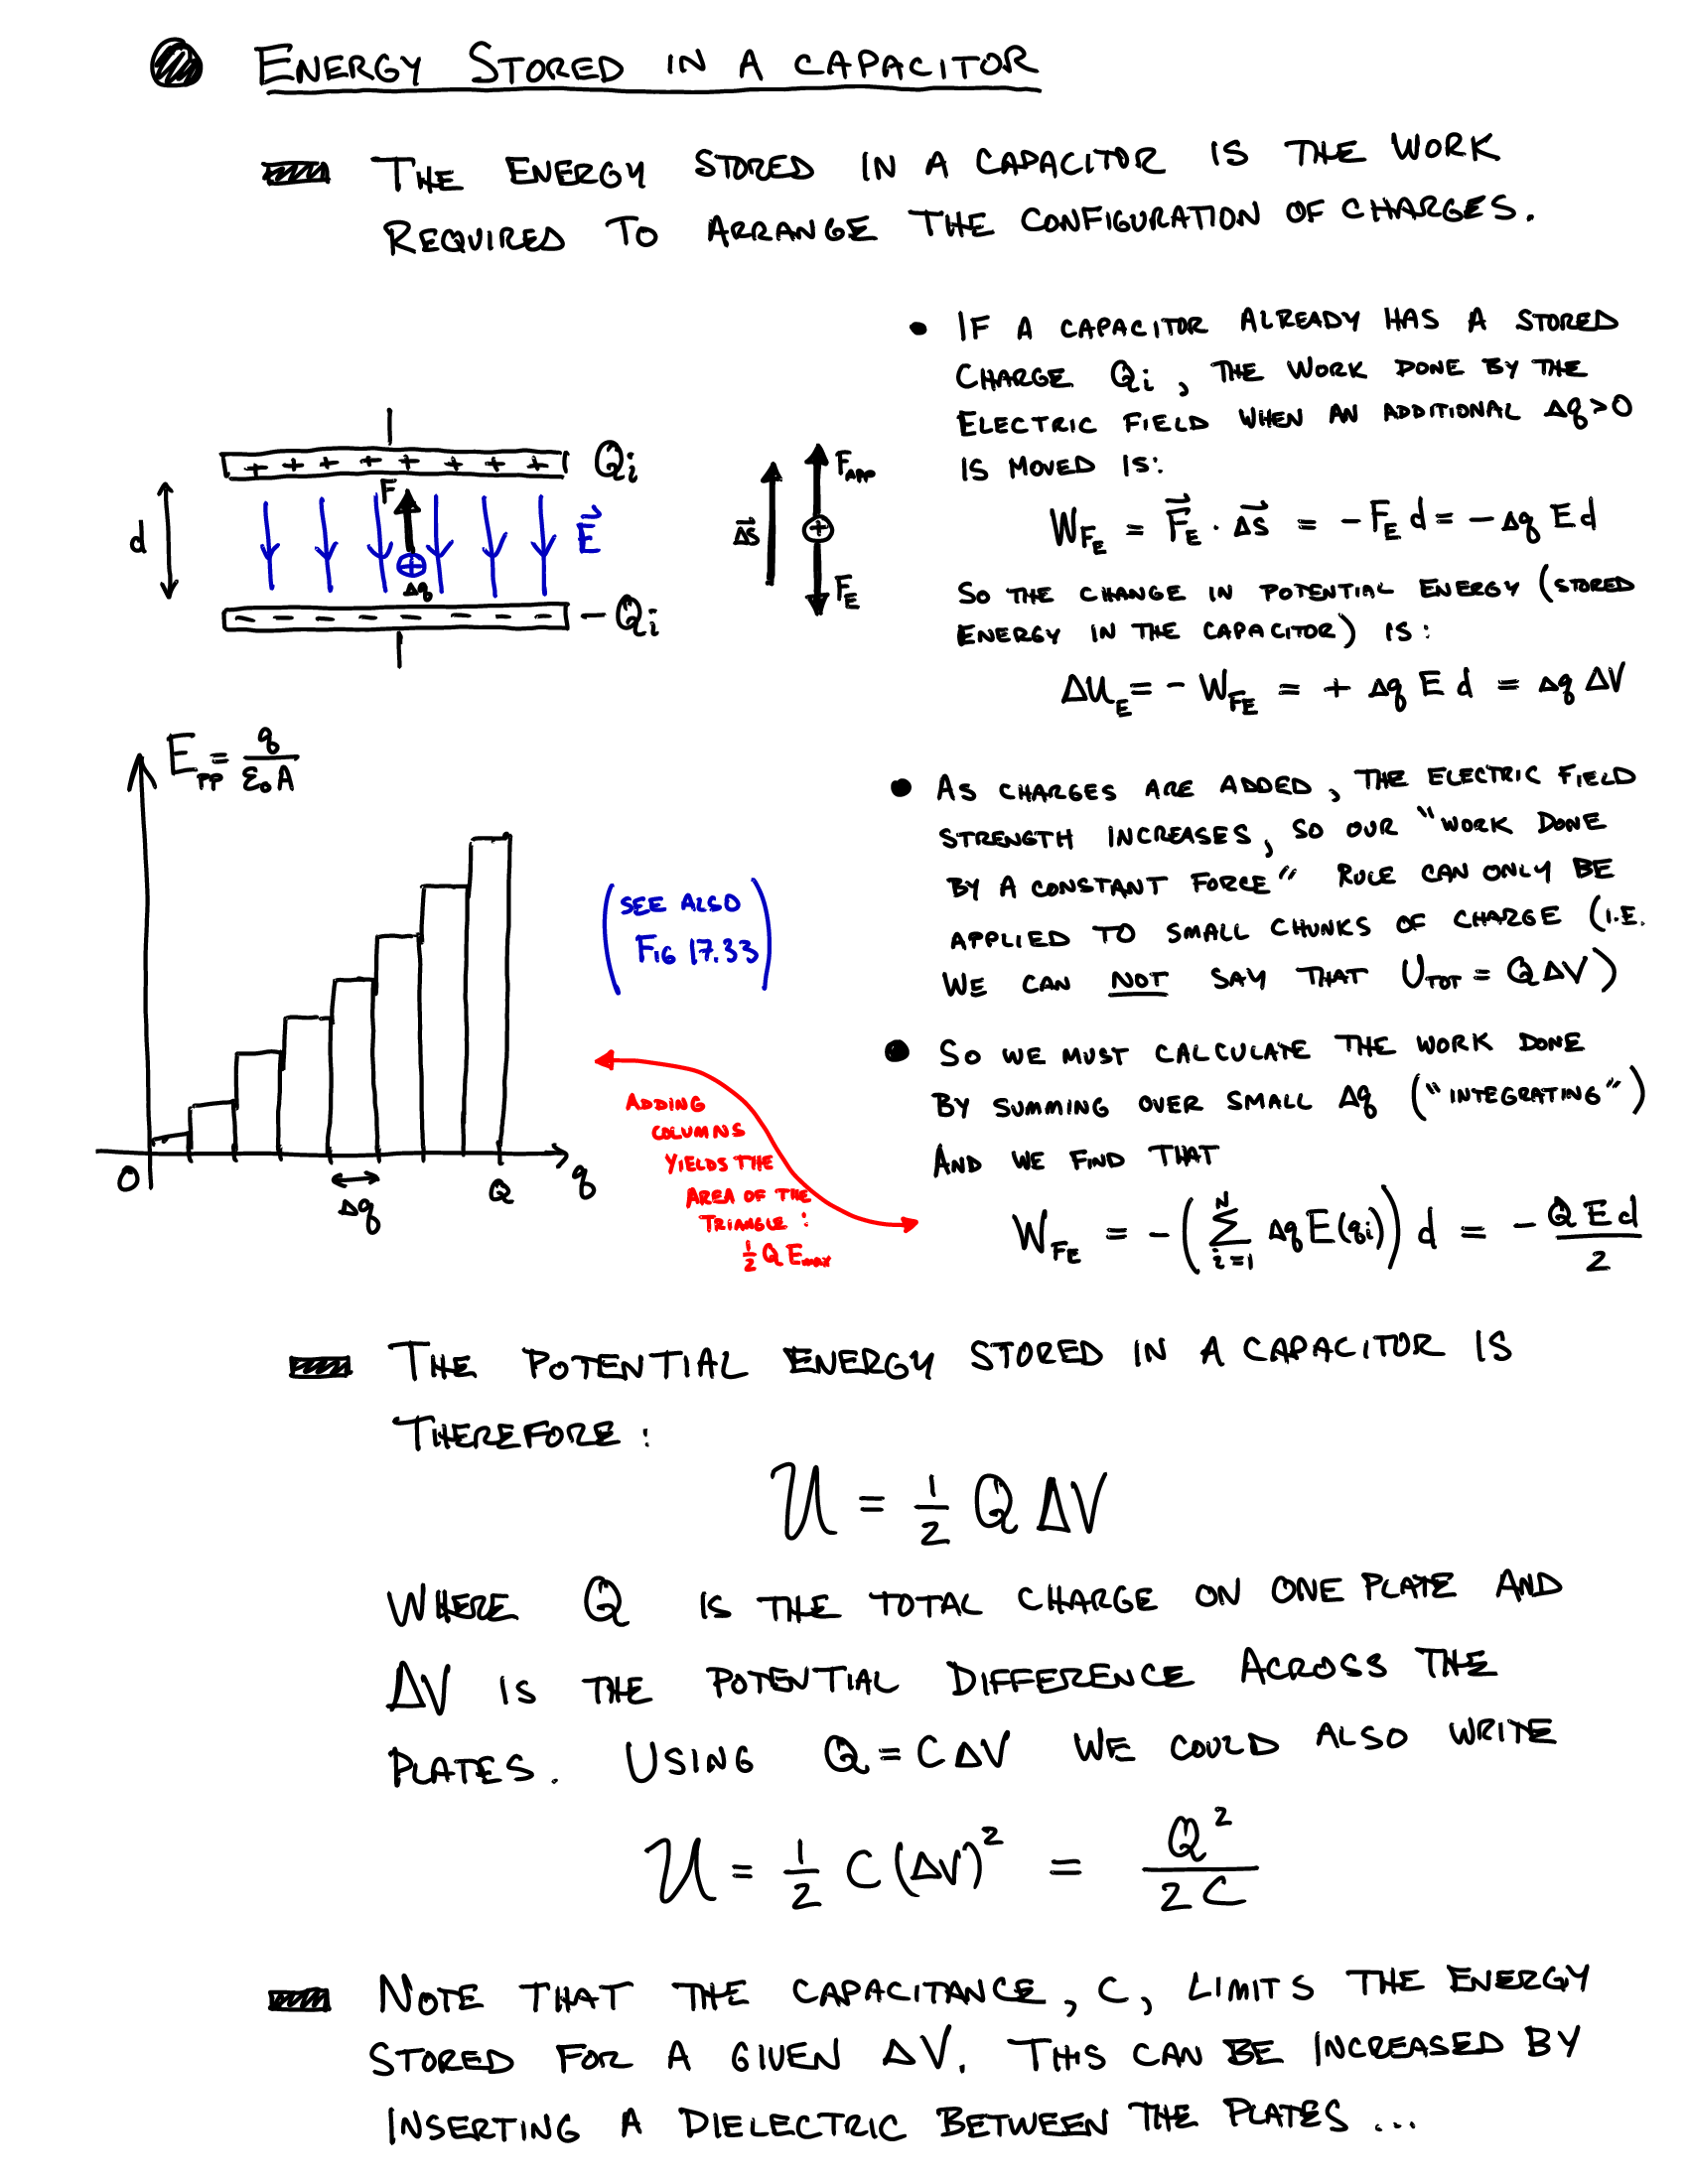 ENERGY STORED IN A CAPACITOR
THE ENERGY STORED IN A CAPACITOR IS THE WORK
REQUIRED TO ARRANGE THE CONFIGURATION OF CHARGES.
• IF A CAPACITOR ALREADY HAS A STORED
CHARGE Qi, THE WORK DONE BY THE
ELECTRIC FIELD WHEN AN ADDITIONAL Δq>0
IS MOVED IS:
W_FE = F⃗_E · Δs⃗ = -F_E d = -Δq E d
SO THE CHANGE IN POTENTIAL ENERGY (STORED
ENERGY IN THE CAPACITOR) IS:
ΔU_E = -W_FE = + Δq E d = Δq ΔV
+ + + + + + + + Qi
F
d
E⃗
Δq
- - - - - - - - -Qi
Δs⃗
F_APP
+
F_E
E_PP = q / ε₀A
0
Δq
Q
q
(SEE ALSO
FIG 17.33)
• AS CHARGES ARE ADDED, THE ELECTRIC FIELD
STRENGTH INCREASES, SO OUR "WORK DONE
BY A CONSTANT FORCE" RULE CAN ONLY BE
APPLIED TO SMALL CHUNKS OF CHARGE (I.E.
WE CAN NOT SAY THAT U_TOT = QΔV)
• SO WE MUST CALCULATE THE WORK DONE
BY SUMMING OVER SMALL Δq ("INTEGRATING")
AND WE FIND THAT
W_FE = -(Σ_{i=1}^{N} Δq E(qi)) d = - Q E d / 2
ADDING
COLUMNS
YIELDS THE
AREA OF THE
TRIANGLE:
½ Q E_max
THE POTENTIAL ENERGY STORED IN A CAPACITOR IS
THEREFORE:
U = ½ Q ΔV
WHERE Q IS THE TOTAL CHARGE ON ONE PLATE AND
ΔV IS THE POTENTIAL DIFFERENCE ACROSS THE
PLATES. USING Q = CΔV WE COULD ALSO WRITE
U = ½ C (ΔV)² = Q² / 2C
NOTE THAT THE CAPACITANCE, C, LIMITS THE ENERGY
STORED FOR A GIVEN ΔV. THIS CAN BE INCREASED BY
INSERTING A DIELECTRIC BETWEEN THE PLATES...